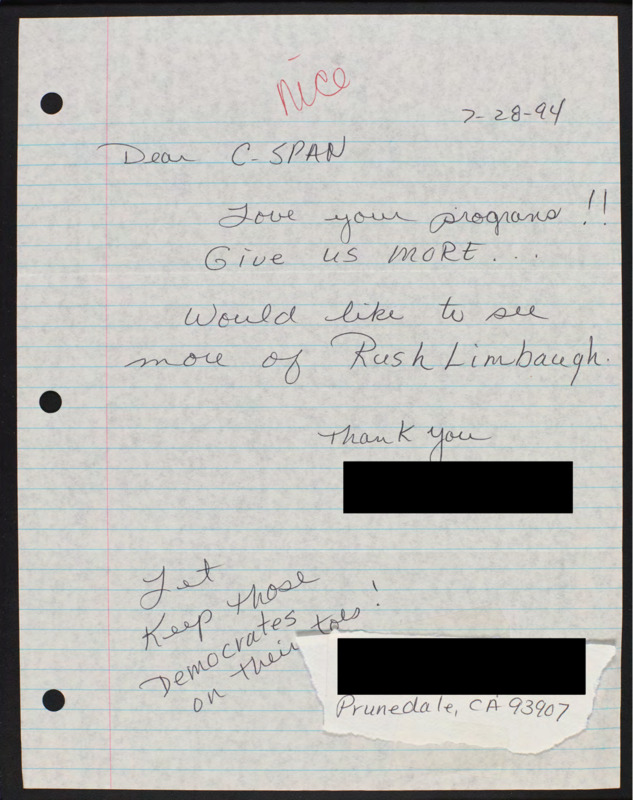 nice
7-28-94
Dear C-SPAN
Love your programs!!
Give us MORE...
Would like to see
more of Rush Limbaugh.
Thank you
Let
Keep those
Democrates
on their toes!
Prunedale, CA 93907